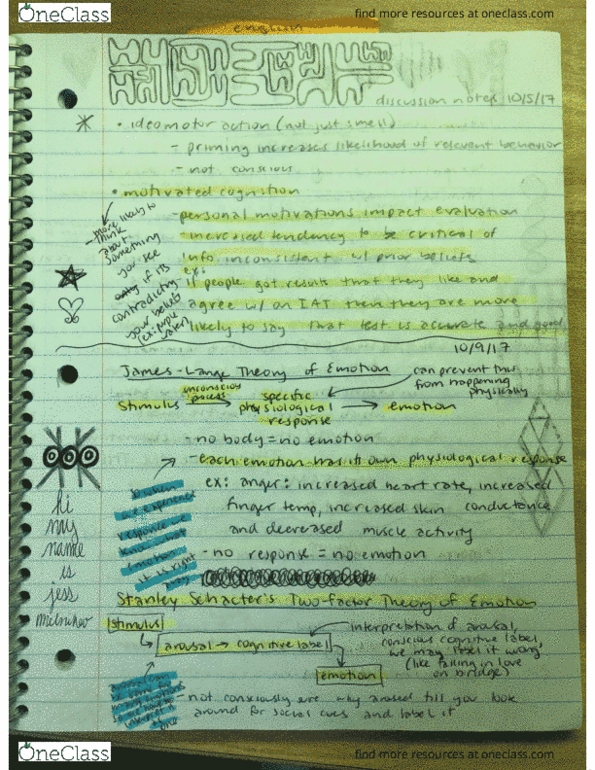 OneClass
find more resources at oneclass.com
english
discussion notes 10/5/17
• ideomotor action (not just smell)
- priming increases likelihood of relevent behavior
- not conscious
• motivated cognition
- more likely to think about something you see if it is contradicting your beliefs (ex: people
- personal motivations impact evaluation
- increased tendency to be critical of
info inconsistent w/ prior beliefs
ex:
if people got results that they like and
agree w/ on IAT then they are more
likely to say that test is accurate and good
10/9/17
James-Lange Theory of Emotion
can prevent this from happening physically
stimulus → unconscious process → specific physiological response → emotion
- no body = no emotion
- each emotion has its own physiological response
ex: anger: increased heart rate, increased
finger temp, increased skin conductance
and decreased muscle activity
- no response = no emotion
hi
my
name
is
jess
Stanley Schacter's Two-factor Theory of Emotion
stimulus
arousal → cognitive label
interpretation of arousal,
conscious cognitive label,
we may label it wrong
(like falling in love
on bridge)
emotion
- not consciously aware why aroused till you look
around for social cues and label it
OneClass
find more resources at oneclass.com